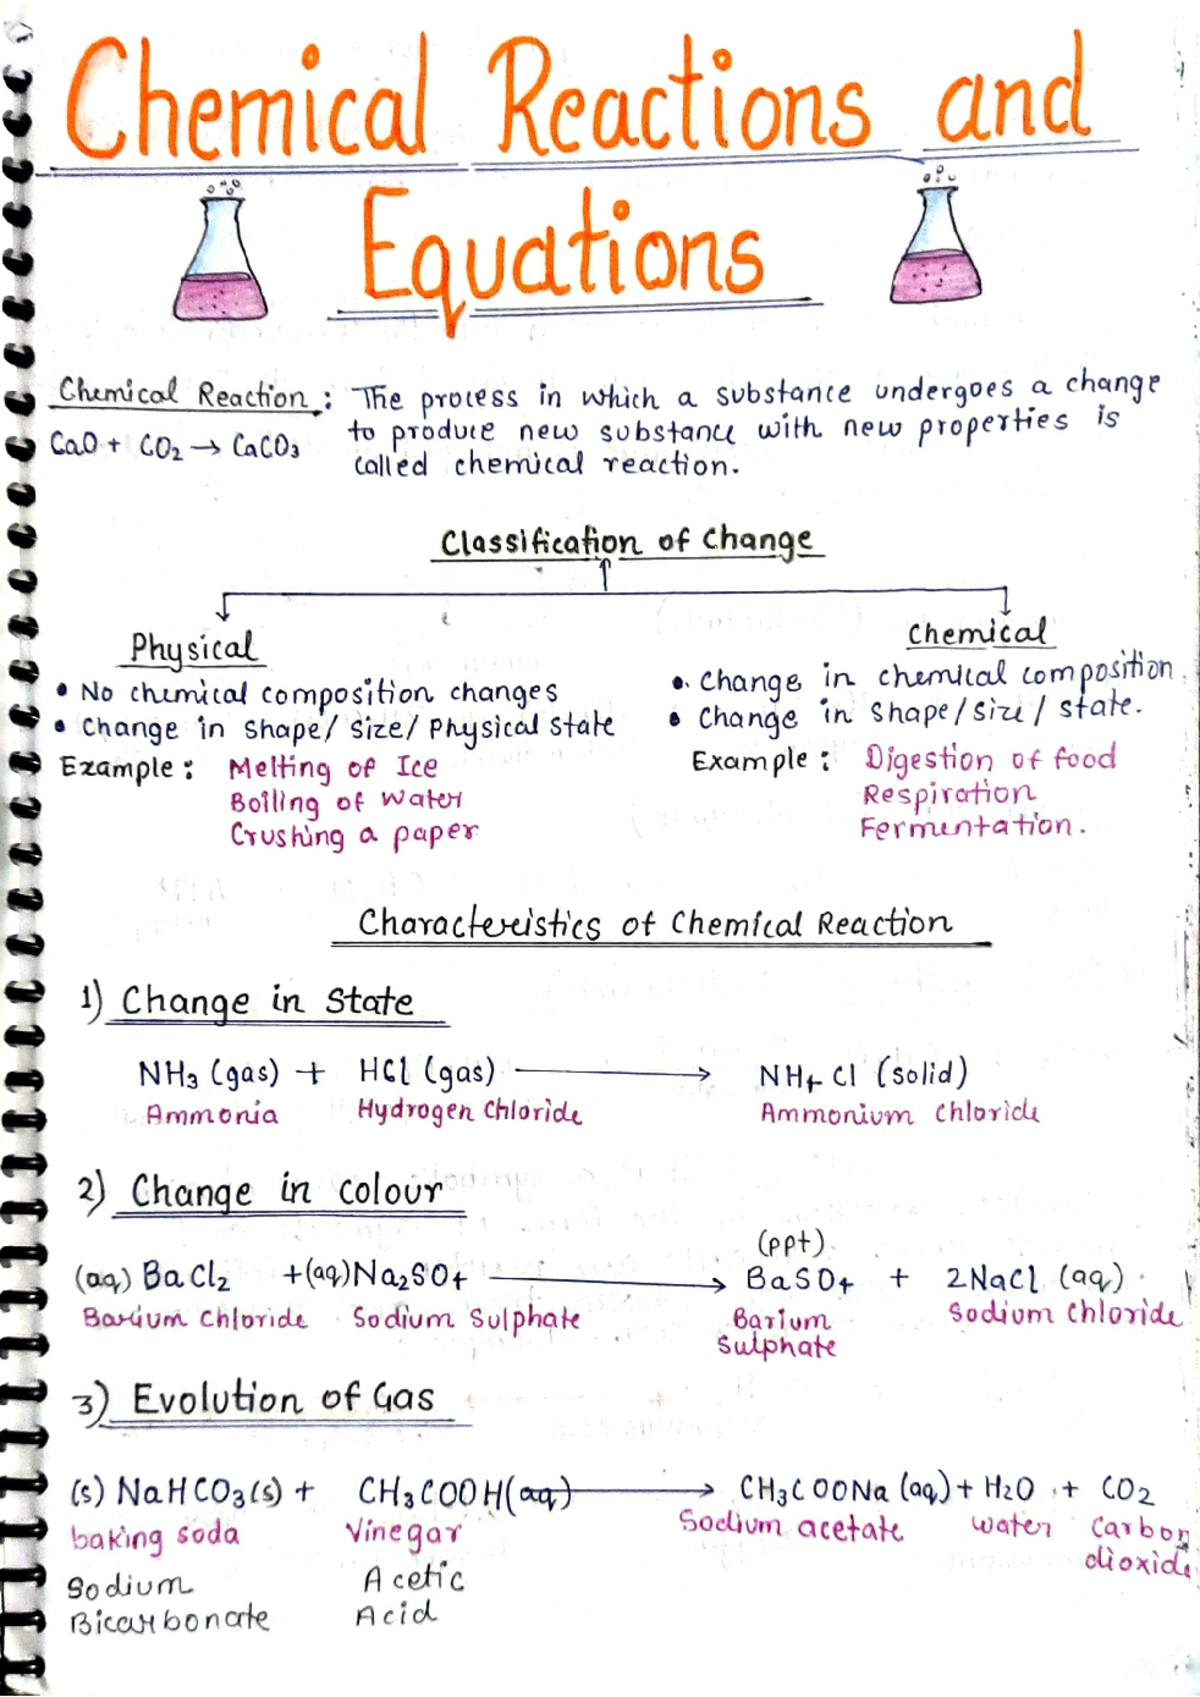 Chemical Reactions and
Equations
Chemical Reaction : The process in which a substance undergoes a change
CaO + CO₂ → CaCO₃ to produce new substance with new properties is
called chemical reaction.
Classification of Change
Physical
Chemical
• No chemical composition changes
• Change in Shape/ Size/ Physical State
Example : Melting of Ice
Boiling of Water
Crushing a paper
• Change in chemical composition.
• Change in Shape/Size/ State.
Example : Digestion of food
Respiration
Fermentation.
Characteristics of Chemical Reaction
1) Change in State
NH₃ (gas) + HCl (gas) → NH₄ Cl (solid)
Ammonia Hydrogen Chloride Ammonium Chloride
2) Change in Colour
(ppt)
(aq) BaCl₂ + (aq) Na₂SO₄ → BaSO₄ + 2NaCl (aq)
Barium Chloride Sodium Sulphate Barium Sodium Chloride
Sulphate
3) Evolution of Gas
(s) NaHCO₃(s) + CH₃COOH(aq) → CH₃COONa (aq) + H₂O + CO₂
baking soda Vinegar Sodium acetate water Carbon
dioxide
Sodium Acetic
Bicarbonate Acid